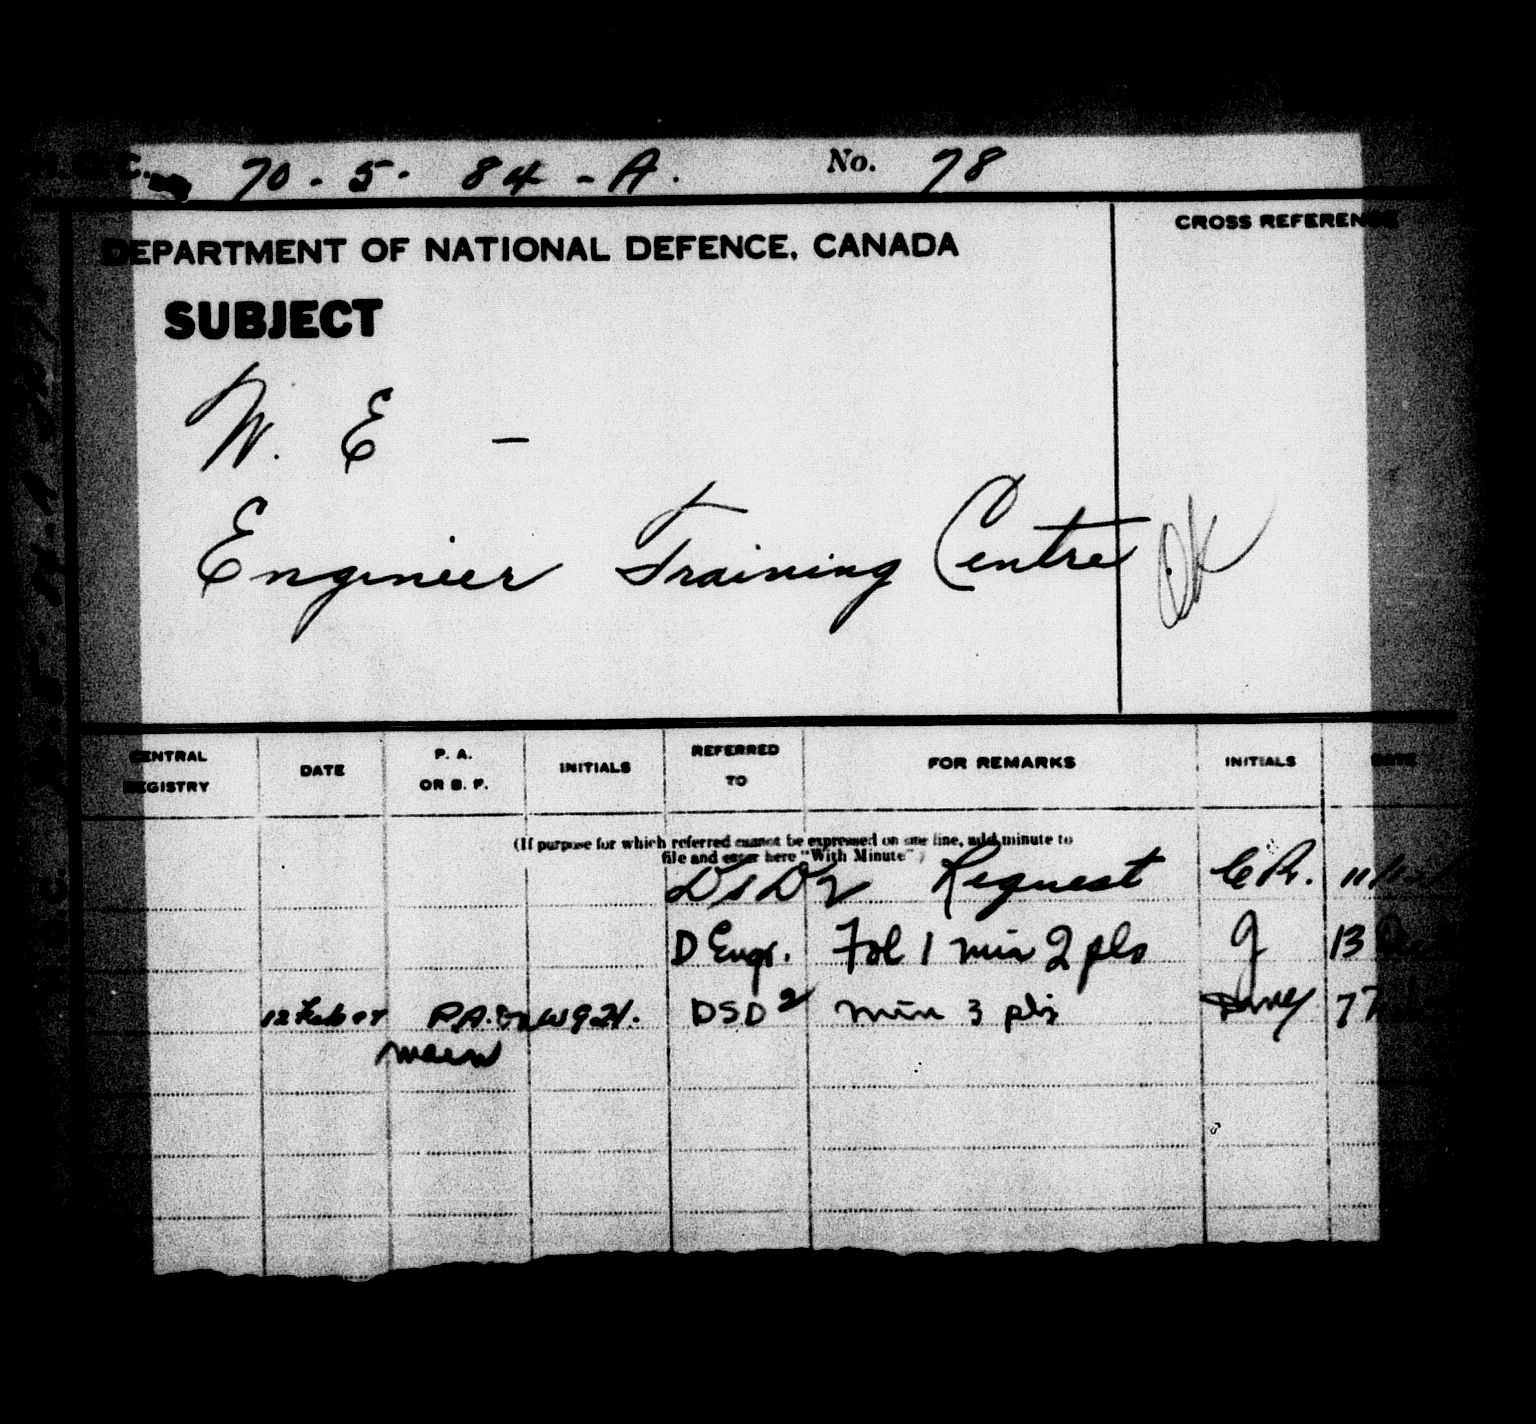 H.Q.C. 70-5-84-A. No. 78
DEPARTMENT OF NATIONAL DEFENCE, CANADA
CROSS REFERENCE
SUBJECT
W. E -
Engineer Training Centre
OK
CENTRAL REGISTRY DATE P. A. OR B. F. INITIALS REFERRED TO FOR REMARKS INITIALS DATE
(If purpose for which referred cannot be expressed on one line, add minute to
file and enter here "With Minute")
DSD2 Request C.R. 11
D Engr. Fol 1 min 2 pls 13
12 Feb P.A. DSD2 min 3 pls 7